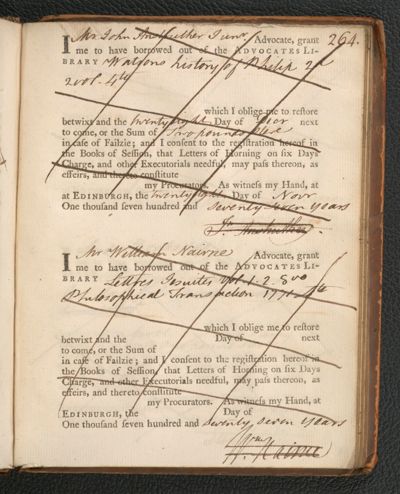 264.
I Mr John Anstruther Junr Advocate, grant
me to have borrowed out of the ADVOCATES LI-
BRARY Watsons history of Philip 2d
2 vol. 4to
which I oblige me to restore
betwixt and the twenty eight Day of next
to come, or the Sum of Two pounds
in case of Failzie; and I consent to the registration hereof in
the Books of Session, that Letters of Horning on six Days
Charge, and other Executorials needful, may pass thereon, as
effeirs, and thereto constitute
my Procurators. As witness my Hand, at
at EDINBURGH, the twenty eight Day of Novr
One thousand seven hundred and seventy seven years
Jo. Anstruther
I Mr William Nairne Advocate, grant
me to have borrowed out of the ADVOCATES LI-
BRARY Lettres vol. 1. 2. 8vo
Philosophical Transaction
which I oblige me to restore
betwixt and the Day of next
to come, or the Sum of
in case of Failzie; and I consent to the registration hereof in
the Books of Session, that Letters of Horning on six Days
Charge, and other Executorials needful, may pass thereon, as
effeirs, and thereto constitute
my Procurators. As witness my Hand, at
EDINBURGH, the Day of
One thousand seven hundred and seventy seven years
Wm
Nairne